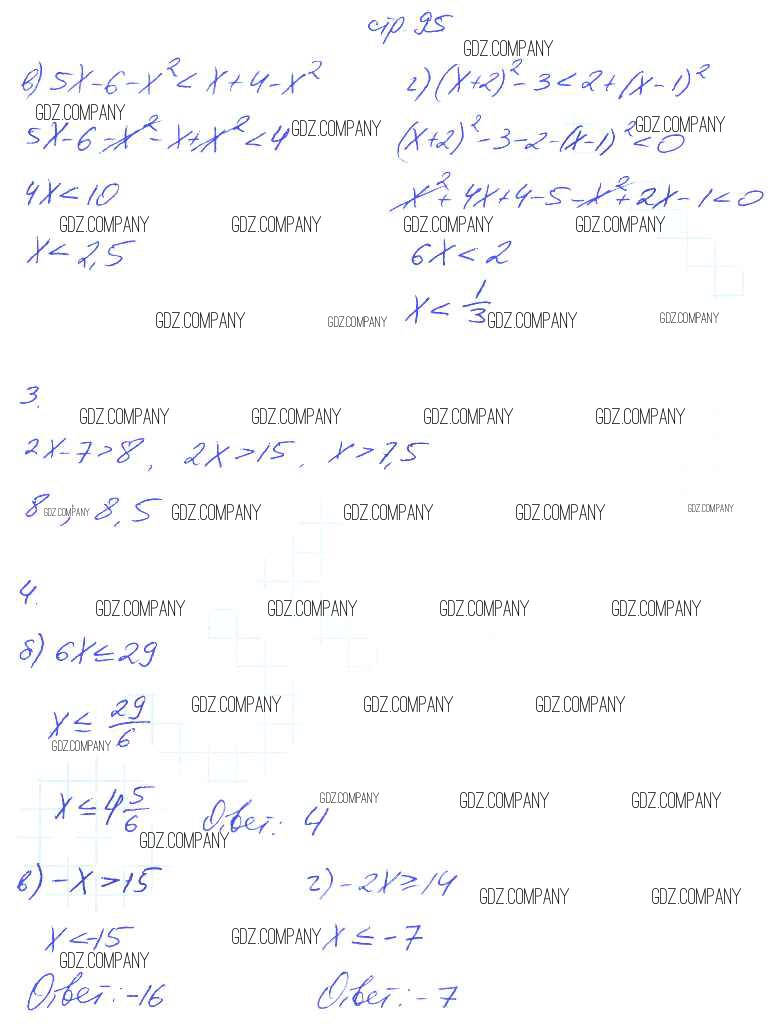 стр. 95
GDZ.COMPANY
в) 5x-6-x² < x+4-x²
г) (x+2)²-3<2+(x-1)²
GDZ.COMPANY
5x-6-x²-x+x²<4
GDZ.COMPANY
(x+2)²-3-2-(x-1)²<0
GDZ.COMPANY
4x<10
x²+4x+4-5-x²+2x-1<0
GDZ.COMPANY GDZ.COMPANY GDZ.COMPANY GDZ.COMPANY
x<2,5
6x<2
x< 1/3
GDZ.COMPANY GDZ.COMPANY GDZ.COMPANY GDZ.COMPANY
3.
GDZ.COMPANY GDZ.COMPANY GDZ.COMPANY GDZ.COMPANY
2x-7>8, 2x>15, x>7,5
8; 8,5
GDZ.COMPANY GDZ.COMPANY GDZ.COMPANY GDZ.COMPANY GDZ.COMPANY
4.
GDZ.COMPANY GDZ.COMPANY GDZ.COMPANY GDZ.COMPANY
б) 6x≤29
x≤ 29/6
GDZ.COMPANY GDZ.COMPANY GDZ.COMPANY
GDZ.COMPANY
x≤4 5/6 Ответ: 4
GDZ.COMPANY GDZ.COMPANY GDZ.COMPANY
GDZ.COMPANY
в) -x>15
г) -2x≥14
GDZ.COMPANY GDZ.COMPANY
x<-15
GDZ.COMPANY
x≤-7
GDZ.COMPANY
Ответ: -16
Ответ: -7